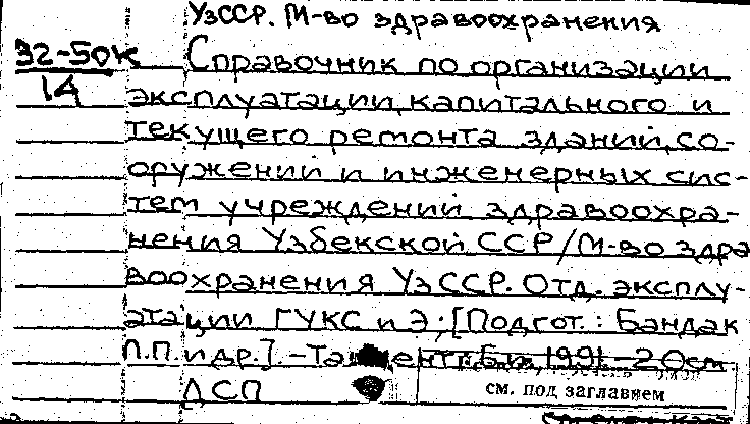 УзССР. М-во здравоохранения
32-50К Справочник по организации
14 эксплуатации, капитального и
текущего ремонта зданий, со-
оружений и инженерных сис-
тем учреждений здравоохра-
нения Узбекской ССР/М-во здра
воохранения УзССР. Отд. эксплу-
атации ГУКС и Э; [Подгот.: Бандак
П.П. и др.] - Ташкент: Б.и., 1991 - 20см
ДСП см. под заглавием